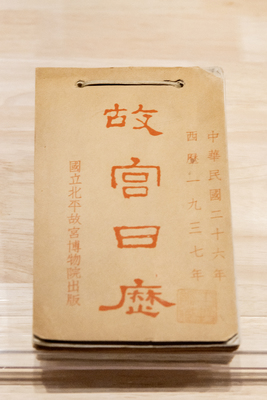 中華民國二十六年
西曆一九三七年
故宮日曆
國立北平故宮博物院出版